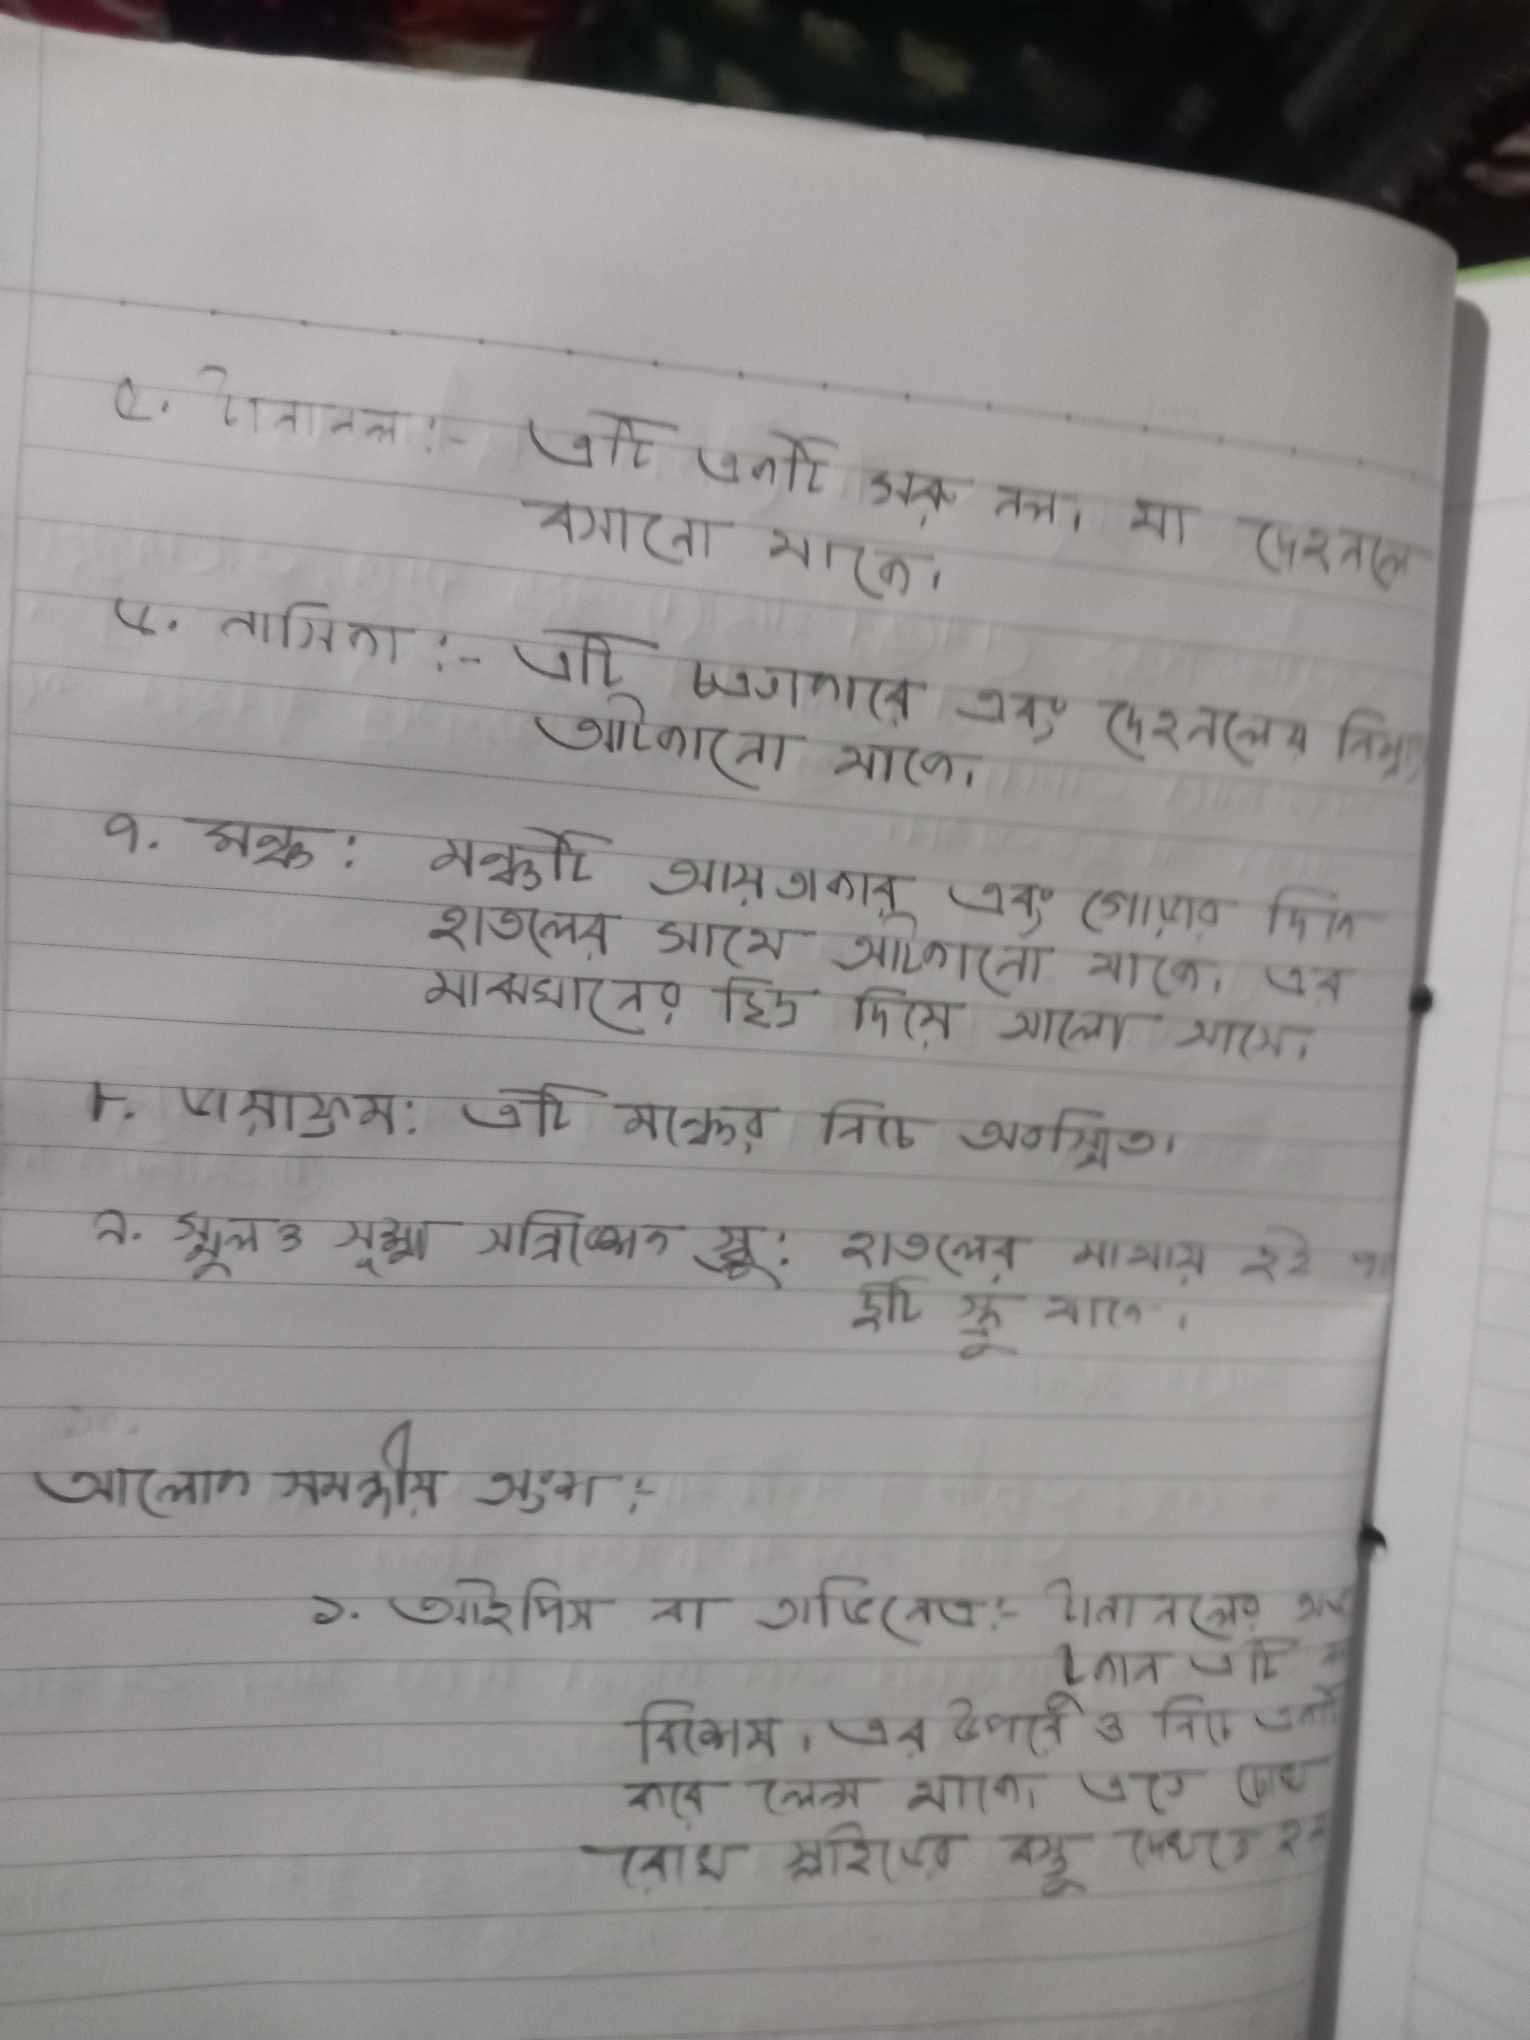 ৫. টানানল :- এটি একটি সরু নল। যা দেহনলে
বসানো থাকে।
৬. নাসিকা :- এটি চক্রাকারে এবং দেহনলের
আটকানো থাকে।
৭. মঞ্চ : মঞ্চটি আয়তাকার এবং গোড়ার দিকে
হাতলের সাথে আটকানো থাকে। এর
মাঝখানের ছিদ্র দিয়ে আলো আসে।
৮. ডায়াফ্রাম: এটি মঞ্চের নিচে অবস্থিত।
৯. স্থুল ও সূক্ষ্ম সন্নিবেশক স্ক্রু : হাতলের মাথায় দুই
দুটি স্ক্রু থাকে।
আলোক সমন্ধীয় অংশ :-
১. আইপিস বা অভিনেত্র :- টানা নলের
এটি
বিশেষ। এর উপরে ও নিচে
করে লেন্স থাকে। এতে চোখ
রেখে স্লাইডের বস্তু দেখতে